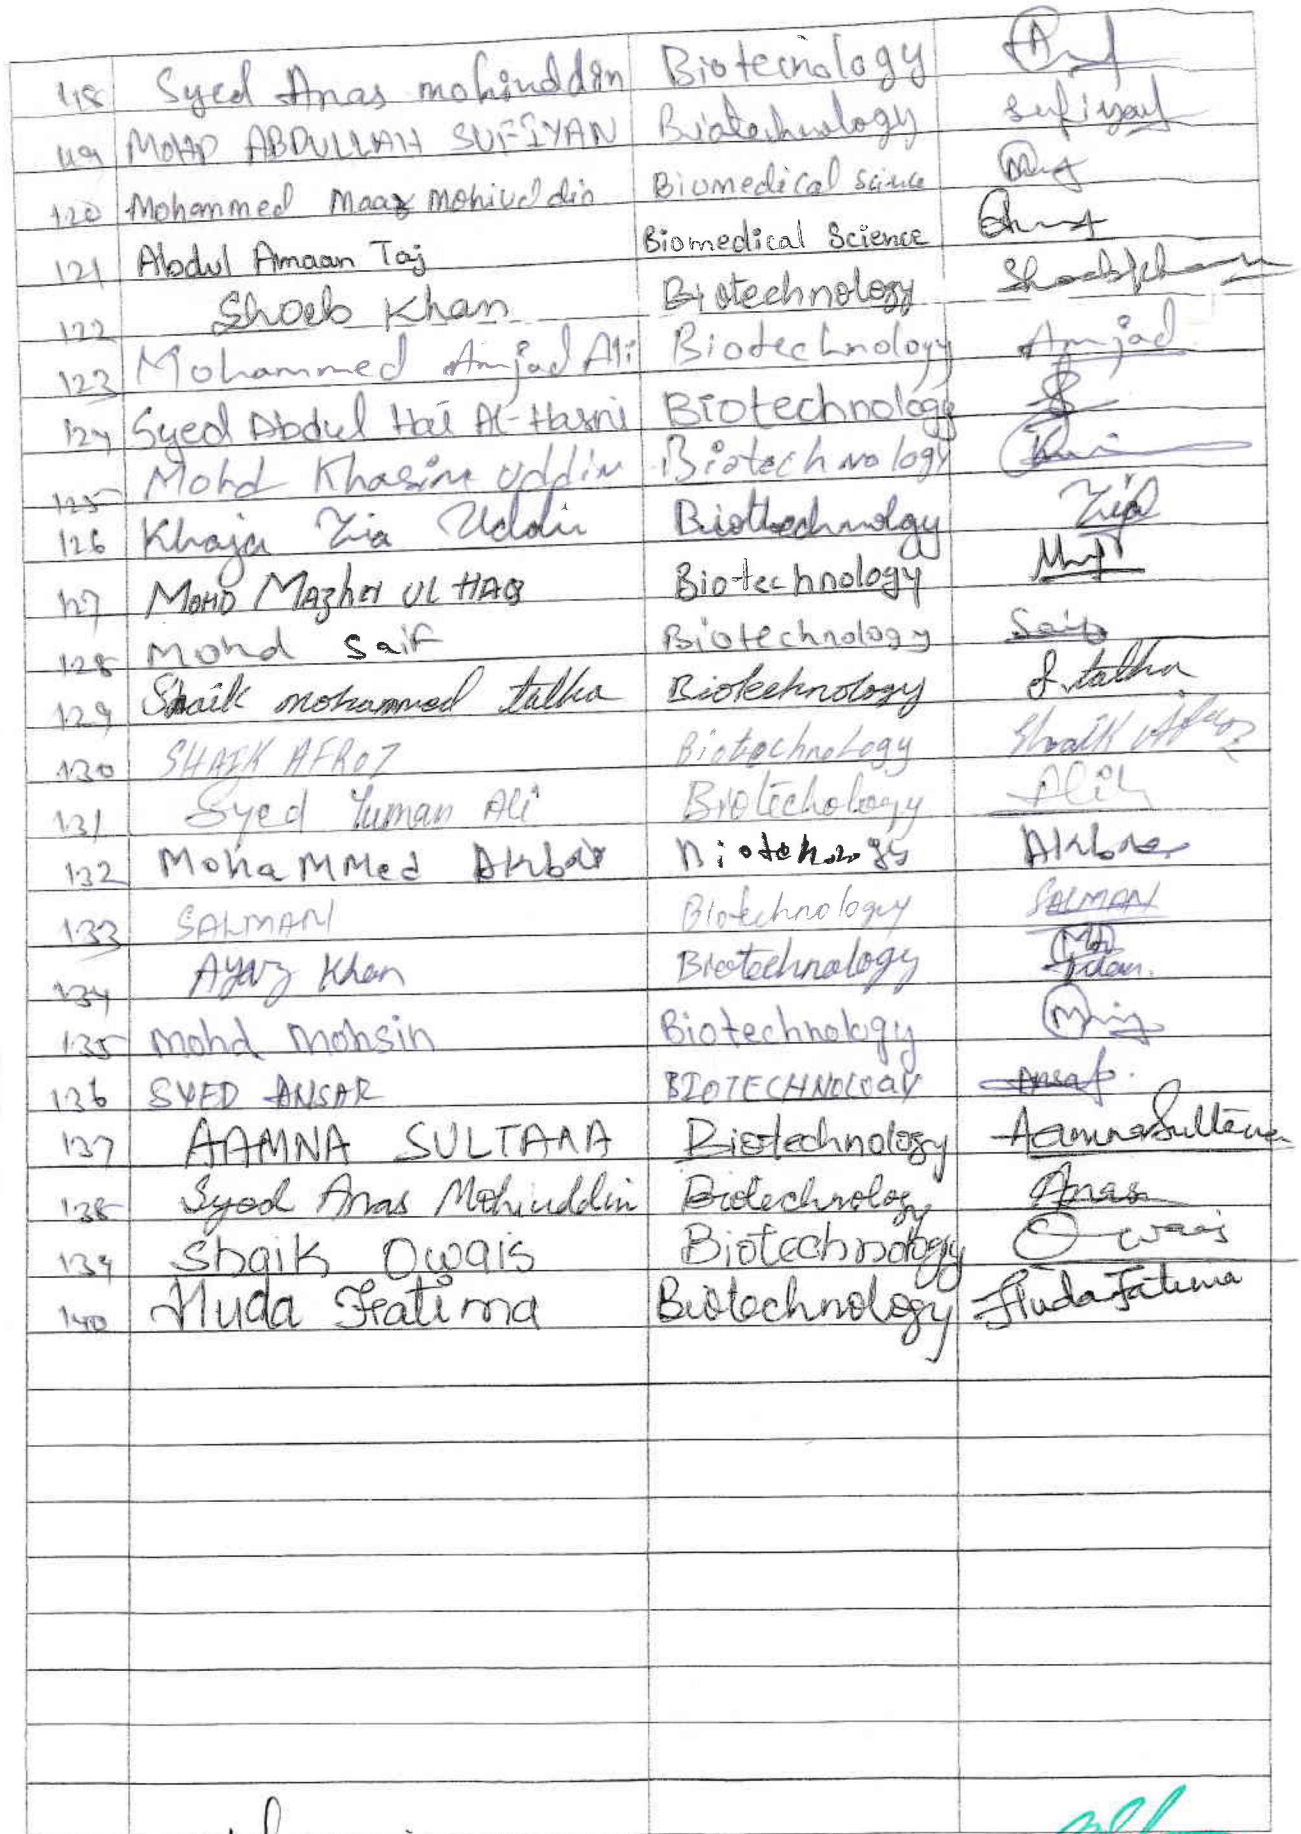 118 Syed Anas mohiuddin Biotecnology
119 MOHD ABDULLAH SUFIYAN Biotechnology Sufiyan
120 Mohammed Maaz mohiuddin Biomedical Science
121 Abdul Amaan Taj Biomedical Science
122 Shoeb Khan Biotechnology Shoeb Khan
123 Mohammed Amjad Ali Biotechnology Amjad
124 Syed Abdul Hai Al-Hasni Biotechnology
125 Mohd Khasim Uddin Biotechnology
126 Khaja Zia Uddin Zia
127 MOHD UL HAQ Biotechnology
128 Mohd Saif Biotechnology Saif
129 Shaik mohammed talha Biotechnology S.talha
130 SHAIK AFROZ Biotechnology Shaik Afroz
131 Syed Yuman Ali Biotechology
132 MohaMMed Akbar Akbar
133 SALMAN Biotechnology SALMAN
134 Ayaz Khan Biotechnology
135 Mohd Mohsin Biotechnology
136 SYED ANSAR BIOTECHNOLOGY Ansar
137 AAMNA SULTANA Biotechnology Aamna Sultana
138 Syed Anas Mohiuddin Biotechnology Anas
139 Shaik Owais Biotechnology Owais
140 Huda Fatima Biotechnology Huda Fatima